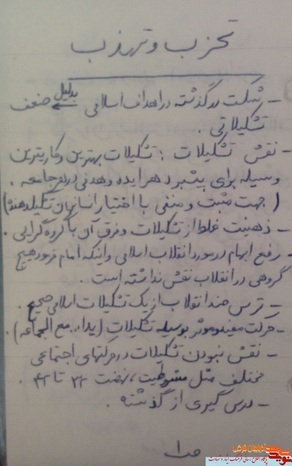 تحزب و تهذب
- شکست در گذشته در اهداف اسلامی بدلیل ضعف
تشکیلاتی .
- نقش تشکیلات : تشکیلات بهترین و کاریترین
وسیله برای پیشبرد هر ایده و هدفی در هر جامعه .
( جهت مثبت و منفی با اختیار انسانهای تشکیل دهنده )
- ذهنیت غلط از تشکیلات و فرق آن با گروه گرایی .
- رفع ابهام در مورد انقلاب اسلامی و اینکه امام فرمود هیچ
گروهی در انقلاب نقش نداشته است .
- ترس ضد انقلاب از یک تشکیلات اسلامی صحیح
- حرکت مفید و موثر بوسیله تشکیلات ( یدالله مع الجماعه ) .
- نقش نبودن تشکیلات در حرکتهای اجتماعی
مختلف مثل مشروطیت ، نهضت ۳۲ تا ۴۲ .
- درس گیری از گذشته .
ص ۱